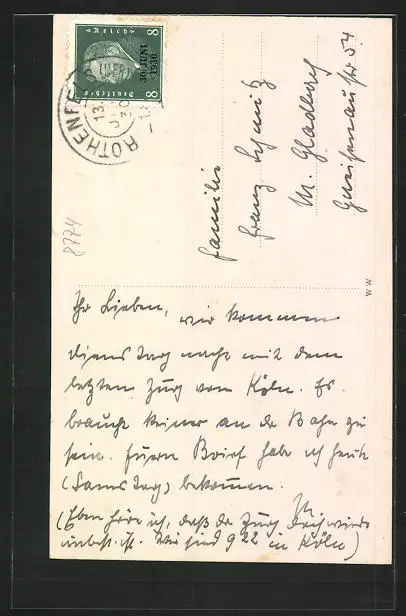 Deutsches Reich
8 8
30. JUNI
1930
ROTHENFE
13.
8774
Familie
Franz Schmitz
M. Gladbach
Gneisenaustr 54
W W
Ihr Lieben, wir kommen
Dienstag nacht mit dem
letzten Zug von Köln. Es
braucht keiner an der Bahn zu
sein. Euren Brief habe ich heute
(Samstag) bekommen.
(Eben höre ich, daß der Zug
unbest. ist. Wir sind 9 22 in Köln)